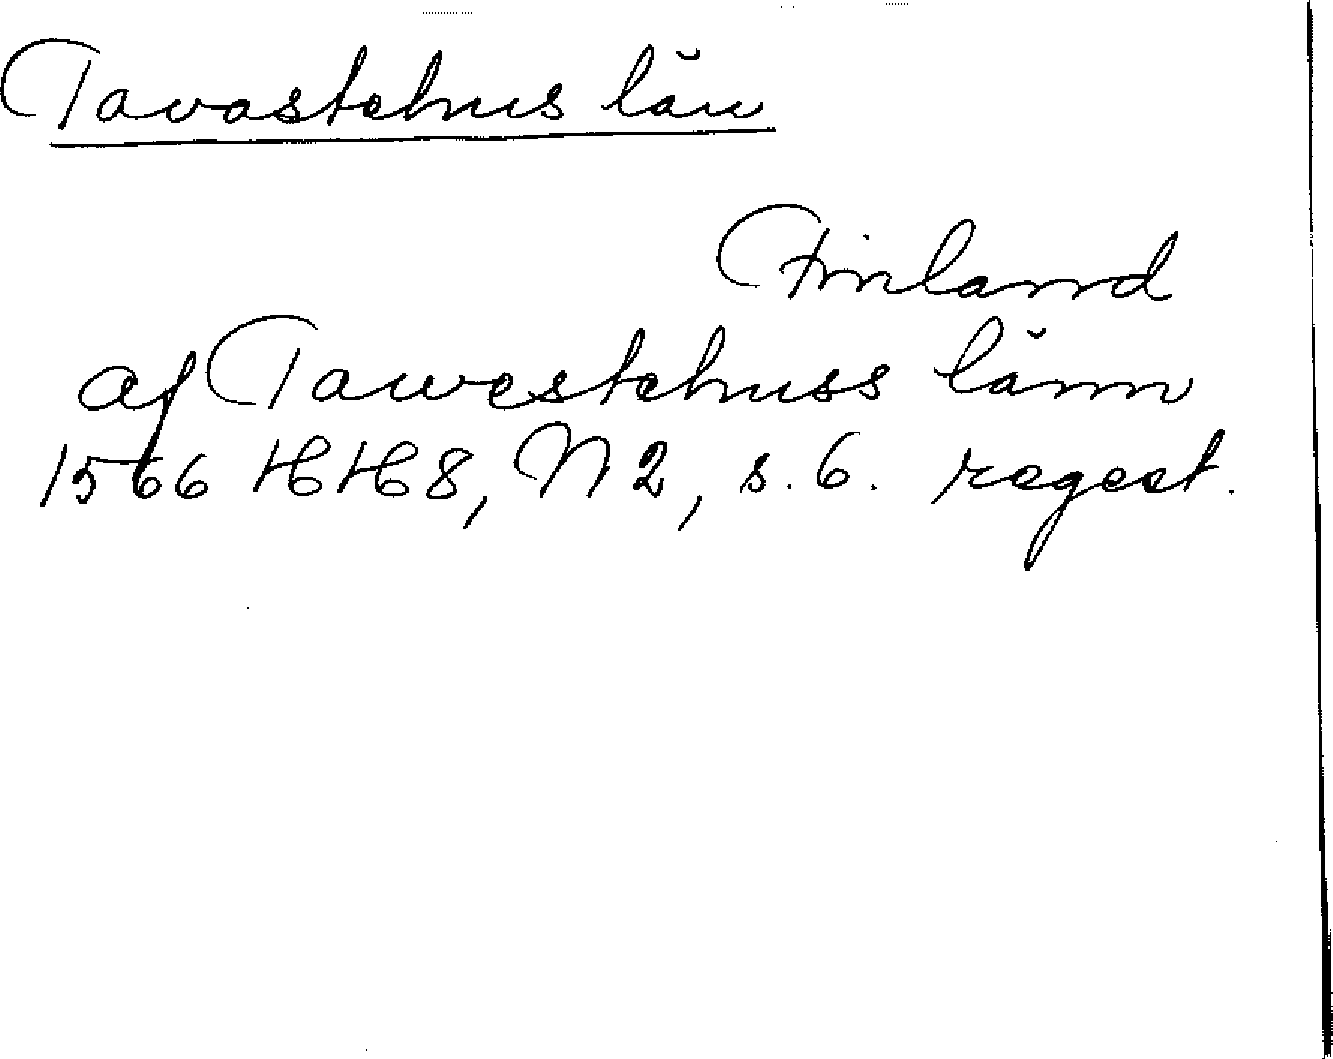 Tavastehus län
Finland
af Tawestehuss länn
1566 HH8, N2, s. 6. regest.